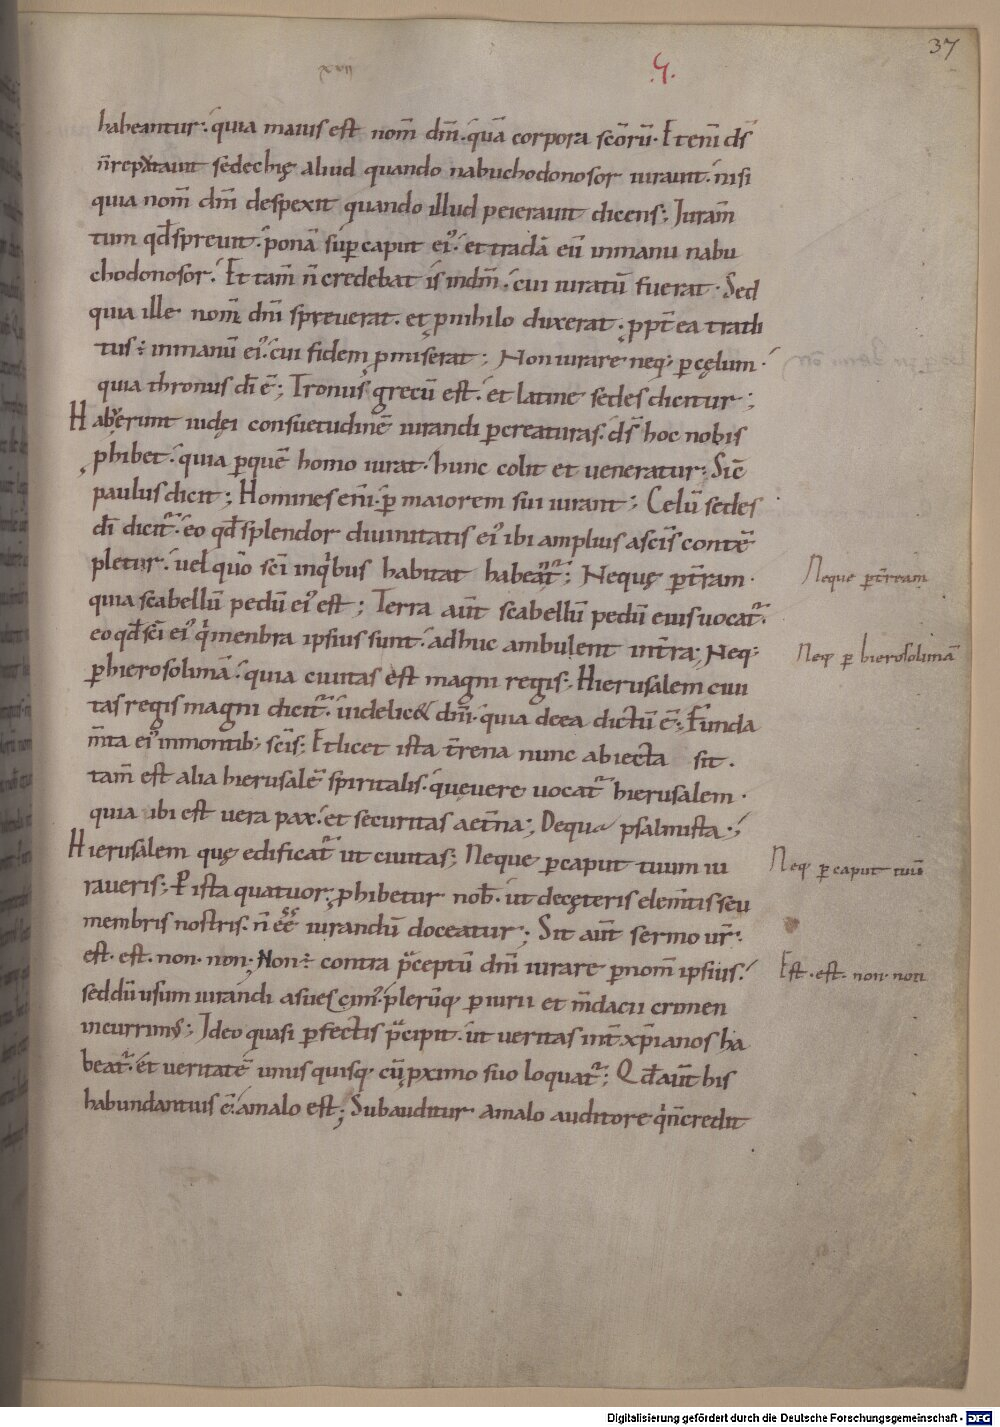 37
xvii
.5.
habeantur. quia maius est nom̄ dm̄i. quā corpora scōrū. Etenī ds̄
n̄ reputauit sedechię aliud quando nabuchodonosor iurauit. nisi
quia nom̄ dm̄ despexit quando illud peierauit dicens; Juram̄
tum qđ spreuit. ponā sup caput ei'. et tradā eū inmanu nabu
chodonosor. Et tam̄ n̄ credebat is indm̄. cui iuratū fuerat. Sed
quia ille nom̄ dm̄i spreuerat. et ꝓ nihilo duxerat. ꝓpt̄ea tradi
tus. inmanū ei'. cui fidem ꝓmiserat; Non iurare neq; ꝑ cęlum.
quia thronus dī ē; Tronus grecū est. et latine sedes dicitur;
Habuerunt iudęi consuetudinē iurandi ꝑ creaturas. ds̄ hoc nobis
ꝓhibet. quia ꝑ quē homo iurat. hunc colit et ueneratur; Sic̄
paulus dicit; Homines enī. ꝑ maiorem sui iurant; Celū sedes
dī dicit᷑. eo qđ splendor diuinitatis ei' ibi amplius a sc̄is contē
pletur. uel quō sc̄i inqͥbus habitat habeant᷑; Neque ꝑ t̄ram.
quia scabellū pedū ei' est; Terra aut̄ scabellū pedū eius uocat᷑.
eo qđ sc̄i ei' qͥ menbra ipsius sunt. adhuc ambulent in t̄ra; Neq;
ꝑ hierosolimā. quia ciuitas est magni regis; Hierusalem ciui
tas regis magni dicit᷑. uidelic& dm̄i. quia de ea dictū ē; Funda
m̄ta ei' inmontib; sc̄is; Et licet ista t̄rena nunc abiecta sit.
tam̄ est alia hierusalē spiritalis. quę uere uocat᷑ hierusalem.
quia ibi est uera pax. et securitas aet̄na; De qua psalmista;
Hierusalem quę edificat᷑ ut ciuitas; Neque ꝑ caput tuum iu
raueris; P ista quatuor. ꝓhibetur nob̄. ut de cęteris elem̄tis seu
membris nostris. n̄ ee̅ iurandū doceatur; Sit aut̄ sermo ur̄.
est. est. non. non; Non contra p̄ceptū dm̄i iurare ꝑ nom̄ ipsius.
sed dū usum iurandi asuescim'. plerūq; ꝑiurii et m̄dacii crimen
incurrim'; Ideo quasi ꝑfectis p̄cipit. ut ueritas int̄ xp̄ianos ha
beat᷑. et ueritatē unusquisq; cū ꝓximo suo loquat᷑; Qđ aut̄ his
habundantius ē. amalo est; Subauditur amalo auditore qͥ n̄ credit
Neque ꝑ t̄ream
Neq; ꝑ hierosolimā
Neq; ꝑ caput tuū
Est. est. non. non
Digitalisierung gefördert durch die Deutsche Forschungsgemeinschaft - DFG